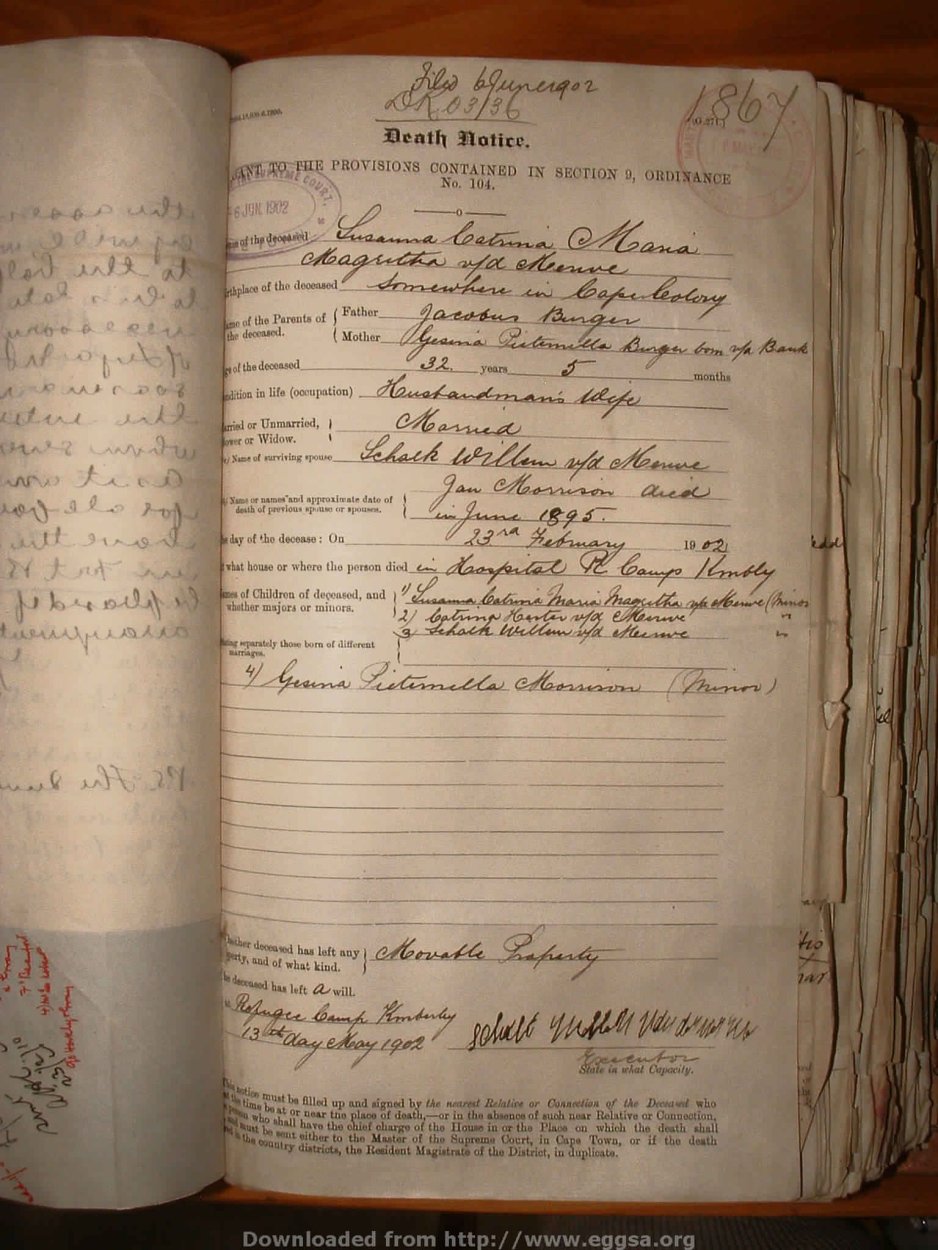 Filed 6 June 1902
DR 03/36
1867
Death Notice.
TO THE PROVISIONS CONTAINED IN SECTION 9, ORDINANCE
No. 104.
SUPREME COURT.
6 JUN. 1902
of the deceased Susanna Catrina Maria
Magritha v/d Merwe
birthplace of the deceased Somewhere in Cape Colony
Name of the Parents of the deceased. { Father Jacobus Burger
Mother Gesina Pieternella Burger born v/a Bank
of the deceased 32 years 5 months
condition in life (occupation) Husbandman's Wife
Married or Unmarried, Widower or Widow. } Married
Name of surviving spouse Schalk Willem v/d Merwe
Name or names and approximate date of death of previous spouse or spouses. } Jan Morrison died
in June 1895.
day of the decease: On 23rd February 1902
what house or where the person died in Hospital R Camp Kmbly
Names of Children of deceased, and whether majors or minors. { 1) Susanna Catrina Maria Magritha v/d Merwe (Minor
2) Catrina Hester v/d Merwe "
3 Schalk Willem v/d Merwe "
stating separately those born of different marriages.
4) Gesina Pieternella Morrison (Minor)
Whether deceased has left any property, and of what kind. } Movable Property
deceased has left a will.
at Refugee Camp Kimberley
13th day May 1902
Schalk Willem v/d Merwe
Executor
State in what Capacity.
This notice must be filled up and signed by the nearest Relative or Connection of the Deceased who
at the time be at or near the place of death,—or in the absence of such near Relative or Connection,
person who shall have the chief charge of the House in or the Place on which the death shall
and must be sent either to the Master of the Supreme Court, in Cape Town, or if the death
in the country districts, the Resident Magistrate of the District, in duplicate.
Downloaded from http://www.eggsa.org